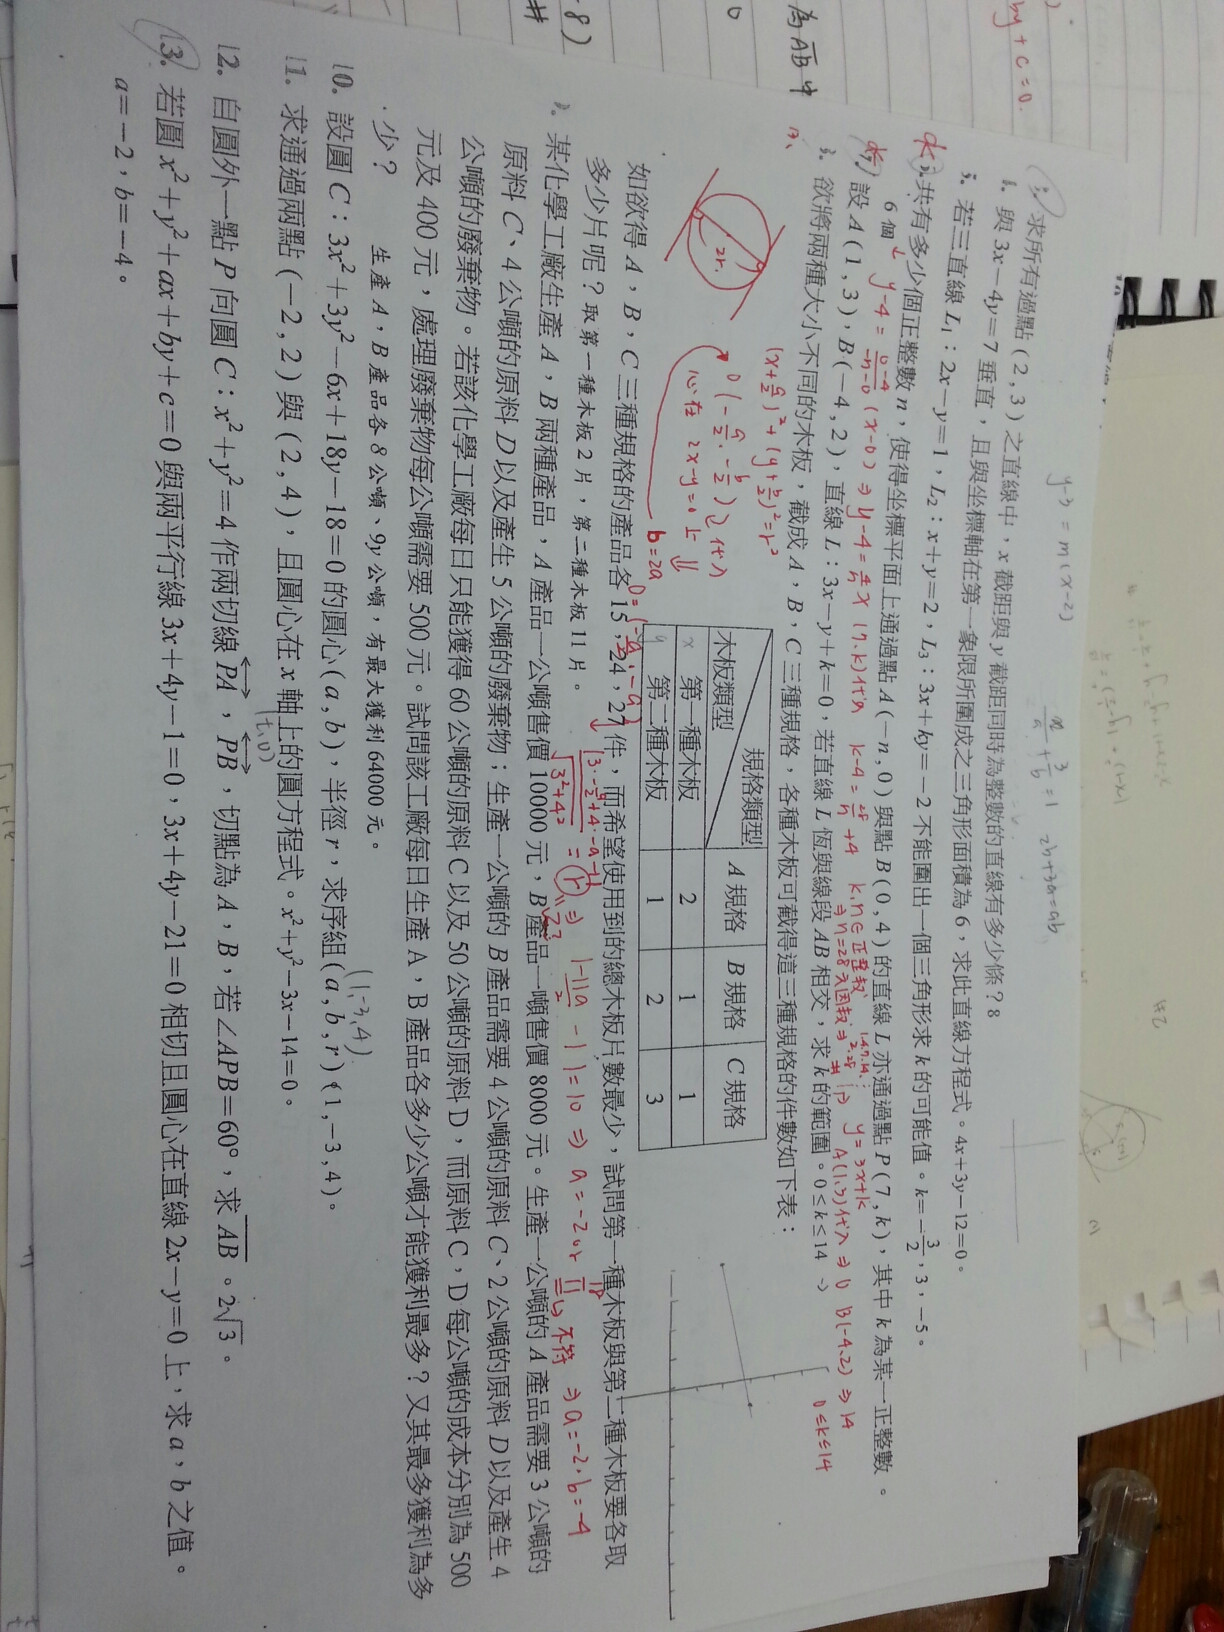 by + c = 0.
為 AB 中
y-3 = m(x-2)
2b+3a=ab
求所有過點(2,3)之直線中，x截距與y截距同時為整數的直線有多少條？8
與3x-4y=7垂直，且與坐標軸在第一象限所圍成之三角形面積為6，求此直線方程式。4x+3y-12=0。
若三直線L₁：2x-y=1，L₂：x+y=2，L₃：3x+ky=-2不能圍出一個三角形求k的可能值。k=-3/2，3，-5。
共有多少個正整數n，使得坐標平面上通過點A(-n,0)與點B(0,4)的直線L亦通過點P(7,k)，其中k為某一正整數。
6個
y-4 = (0-4)/(-n-0) (x-0) ⇒ y-4 = 4/n x (7,k)代入 k-4 = 28/n +4 k,n∈正整數
⇒ n=28之因數
y=3x+k
設A(1,3)，B(-4,2)，直線L：3x-y+k=0，若直線L恆與線段AB相交，求k的範圍。0≤k≤14
A(1,3)代入 ⇒ 0 B(-4,2) ⇒ 14
0≤k≤14
欲將兩種大小不同的木板，截成A，B，C三種規格，各種木板可截得這三種規格的件數如下表：
規格類型
木板類型
A規格 B規格 C規格
x 第一種木板 2 1 1
y 第二種木板 1 2 3
如欲得A，B，C三種規格的產品各15，24，27件，而希望使用到的總木板片數最少，試問第一種木板與第二種木板要各取
多少片呢？取第一種木板2片，第二種木板11片。
2r
(x+a/2)²+(y+b/2)²=r²
O(-a/2,-b/2)代入
心在 2x-y=0上
b=2a
O=(-a/2,-a)
|3·-a/2+4·-a-1|/√(3²+4²) = r ⇒ |-11a/2 -1|=10 ⇒ a=-2 or 18/11 不符 ⇒ a=-2, b=-4
某化學工廠生產A，B兩種產品，A產品一公噸售價10000元，B產品一噸售價8000元。生產一公噸的A產品需要3公噸的
原料C、4公噸的原料D以及產生5公噸的廢棄物；生產一公噸的B產品需要4公噸的原料C、2公噸的原料D以及產生4
公噸的廢棄物。若該化學工廠每日只能獲得60公噸的原料C以及50公噸的原料D，而原料C，D每公噸的成本分別為500
元及400元，處理廢棄物每公噸需要500元。試問該工廠每日生產A，B產品各多少公噸才能獲利最多？又其最多獲利為多
少？ 生產A，B產品各8公噸、9y公噸，有最大獲利64000元。
10. 設圓C：3x²+3y²-6x+18y-18=0的圓心(a,b)，半徑r，求序組(a,b,r)(1,-3,4)。
(1,-3,4)
11. 求通過兩點(-2,2)與(2,4)，且圓心在x軸上的圓方程式。x²+y²-3x-14=0。
(t,0)
12. 自圓外一點P向圓C：x²+y²=4作兩切線PA，PB，切點為A，B，若∠APB=60°，求AB。2√3。
13. 若圓x²+y²+ax+by+c=0與兩平行線3x+4y-1=0，3x+4y-21=0相切且圓心在直線2x-y=0上，求a，b之值。
a=-2，b=-4。